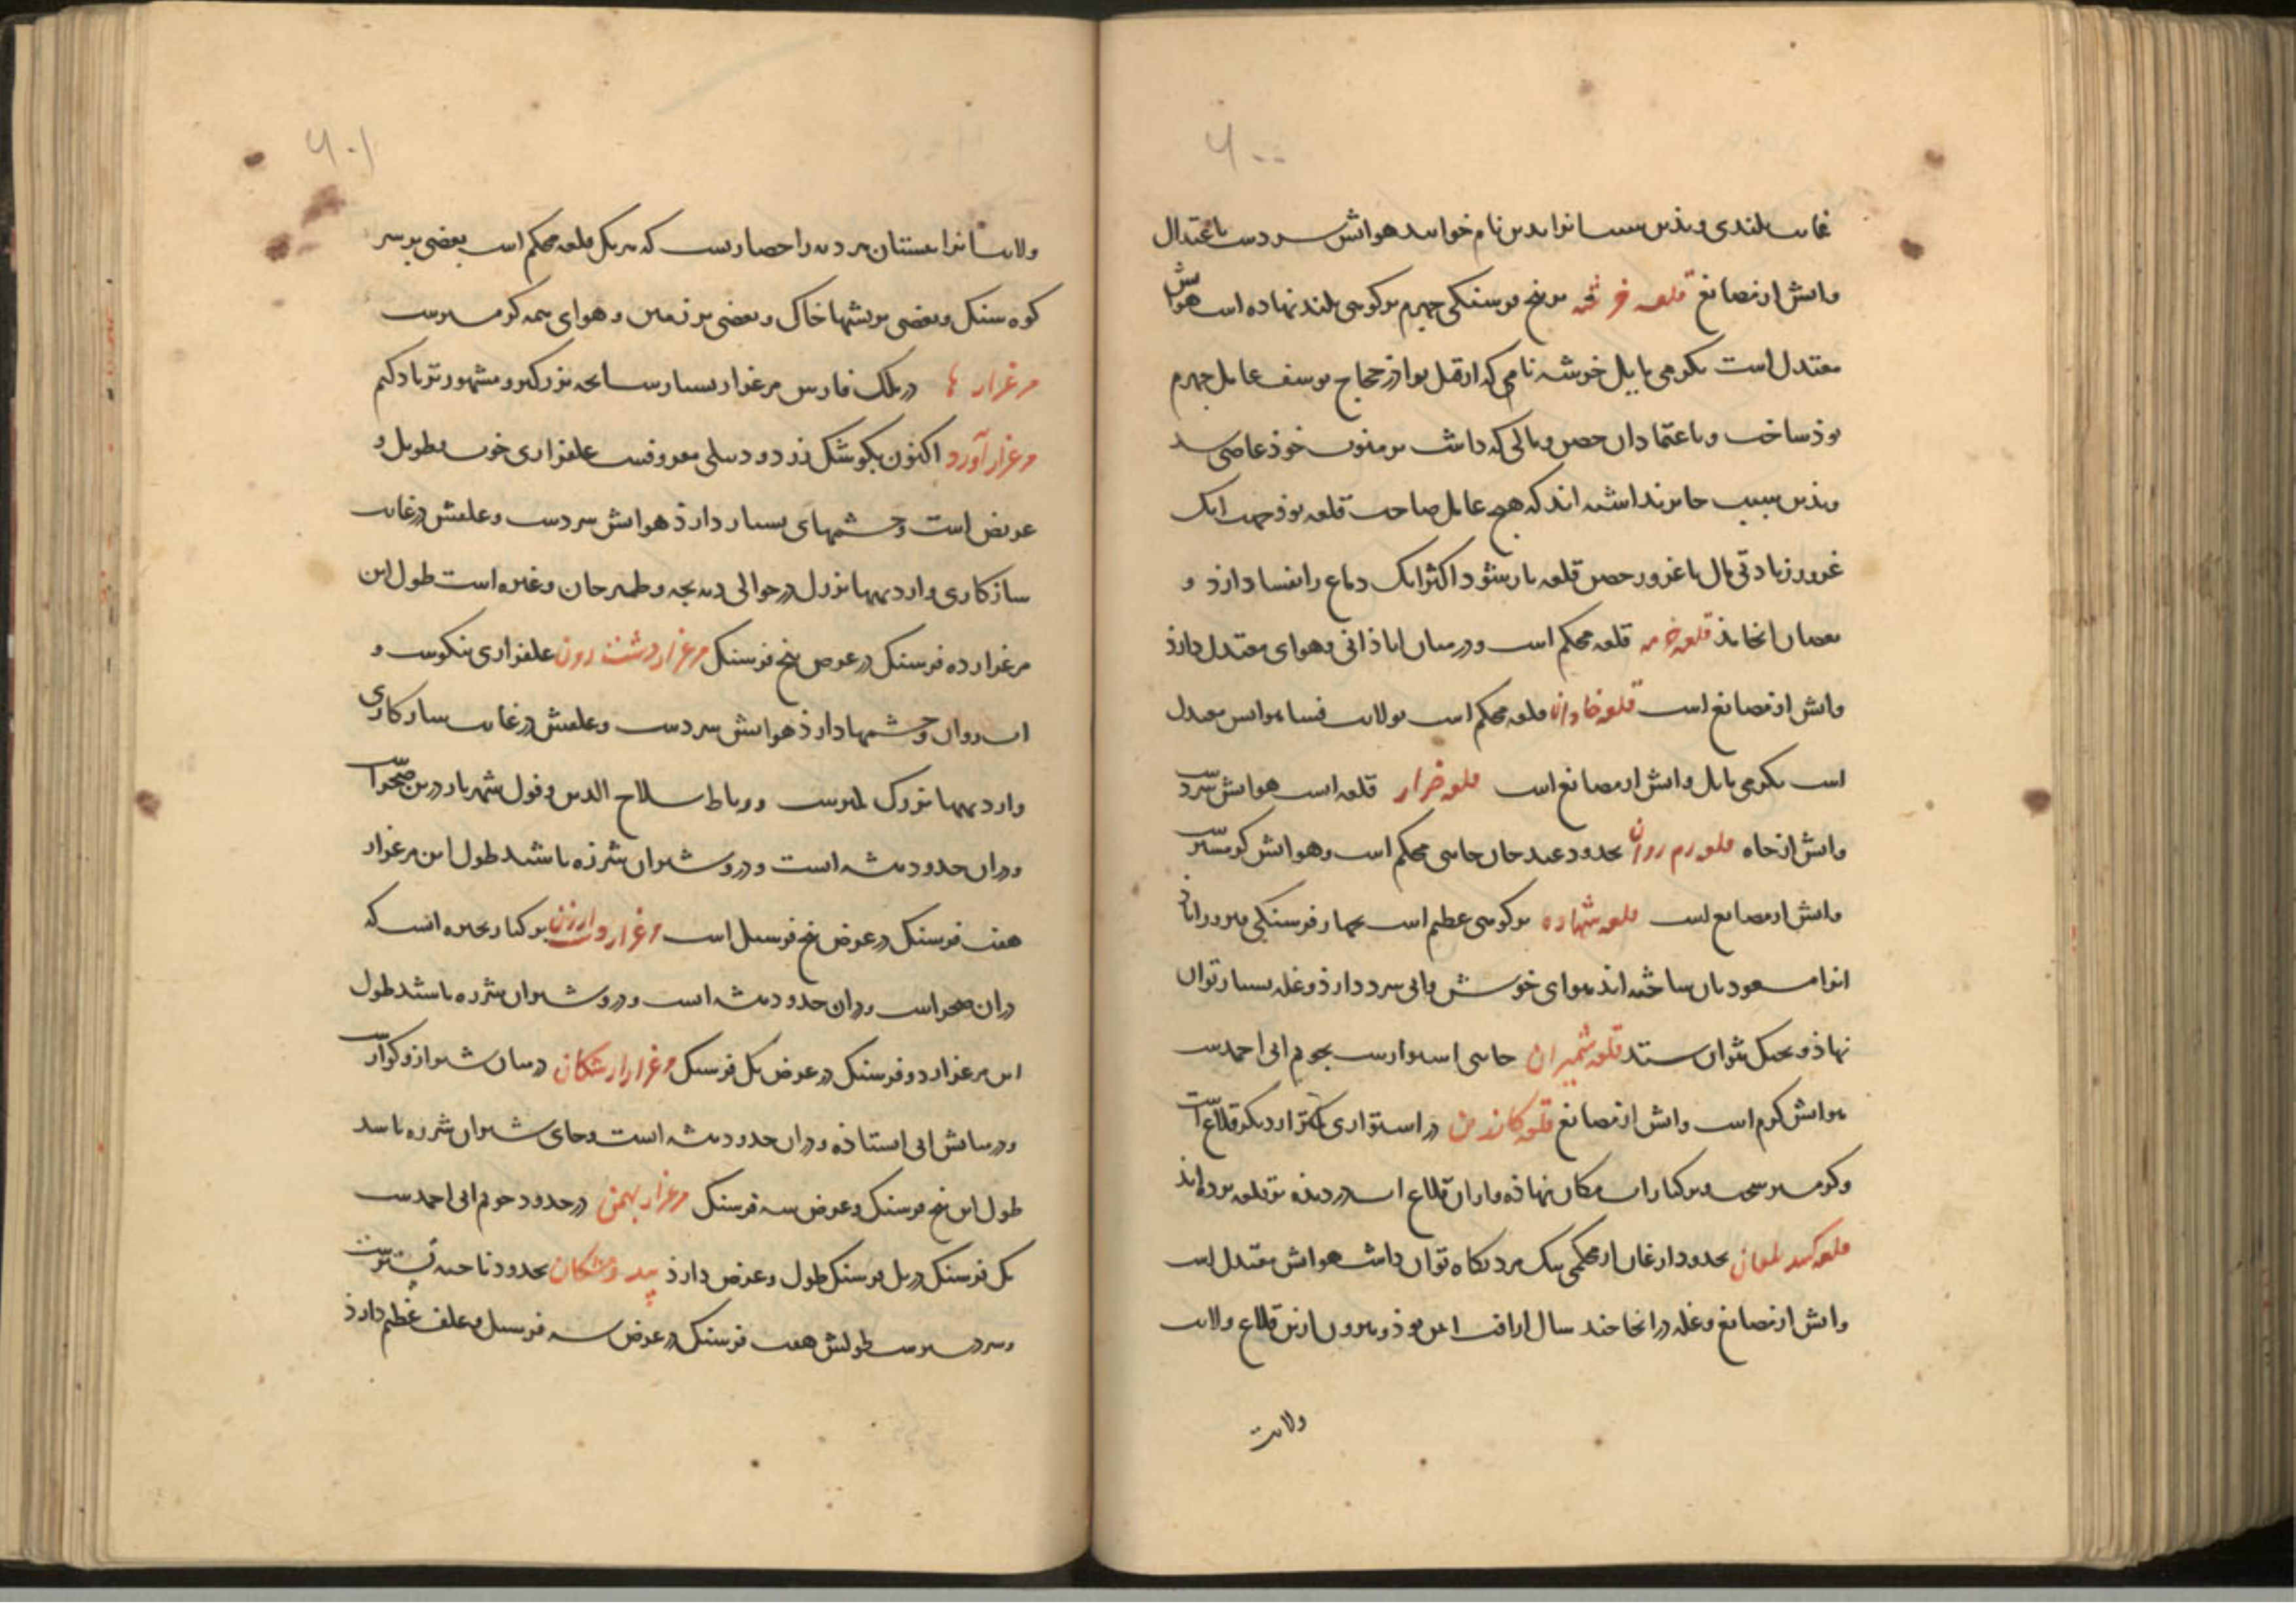 ۶۰۰
غایت بلندی و بذین سبب انرا بدین نام خوانند هوایش سردست باعتدال
و ابش از مصانع قلعه خرشه بر پنج فرسنکی جهرم بر کوهی بلند نهاده است هواش
معتدل است بکرمی مایل خرشه نامی که از قبل برادر حجاج یوسف عامل جهرم
بوذ ساخت و باعتماد ان حصن و مالی که داشت بر منوب خوذ عاصی شد
و بذین سبب جایز نداشته اند که هیچ عامل صاحب قلعه بوذ جهت انک
غرور زیادتی مال با غرور حصن قلعه یار شود اکثر انک دماغ را بفساد ارذ و
بعصیان انجامذ قلعه خرمه قلعه محکم است و در میان اباذانی و هوای معتدل دارذ
و ابش از مصانع است قلعه خاوران قلعه محکم است بولایت فسا هوایش معتدل
است بکرمی مایل و ابش از مصانع است قلعه خرار قلعه است هوایش سردست
و ابش از چاه قلعه رم روان بحدود عبدجان جایی محکم است و هوایش کرمسیرست
و ابش از مصانع است قلعه شهاره بر کوهی عظیم است بچهار فرسنکی فیروراباذ
انرا مسعودیان ساخته اند هوای خوش و ابی سرد دارذ و غله بسیار توان
نهاذ و بجنک نتوان ستد قلعه شمیران جایی استوارست بجویم ابی احمدست
هوایش کرم است و ابش از مصانع قلعه کارزین در استواری کمتر از دیکر قلاع است
و کرمسیر سخت و بر کنار اب نکان نهاذه و از ان قلاع اب دزدیذه بر قلعه برده اند
قلعه کنبد ملغان بحدود ارغان از محکمی بیک مرد نکاه توان داشت هوایش معتدل است
و ابش از مصانع و غله در انجا چند سال از افت ایمن بوذ و بیرون ازین قلاع ولایت
ولایت
۶۰۱
ولایت انرا ایستان هر دیه را حصاریست که هر یک قلعه محکم است بعضی بر سر
کوه سنک و بعضی بر پشتها خاک و بعضی بر زمین و هوای همه کرمسیرست
مرغزارها در ملک فارس مرغزار بسیارست انچه بزرکتر و مشهورتر یاد کنیم
مرغزار آورد اکنون بکوشک زرد و دسلی معروفست علفزاری خوب بطویل و
عریض است و چشمهای بسیار دارذ هوایش سردست و علفش در غایت
سازکاری و از دیهها بزرک در حوالی دیه بجه و طیمرجان و غیره است طول این
مرغزار ده فرسنک در عرض پنج فرسنک مرغزار دشت رون علفزاری نیکوست و
اب روان و چشمها دارذ هوایش سردست و علفش در غایت سازکاری
و از دیهها بزرک لمرست و رباط سلاح الدین و فول شهریار درین صحراست
و در ان حدود بیشه است و درو شیران شرزه باشند طول این مرغزار
هفت فرسنک در عرض پنج فرسنک است مرغزار دشت ارژن بر کنار بحیره انست که
در ان صحراست و در ان حدود بیشه است و درو شیران شرزه باشند طول
این مرغزار دو فرسنک در عرض یک فرسنک مرغزار ارشکان در میان شیراز و کوارست
و در میانش ابی استاذه و در ان حدود بیشه است و جای شیران شرزه باشد
طول این پنج فرسنک و عرض سه فرسنک مرغزار بهمن در حدود جویم ابی احمدست
یک فرسنک در یک فرسنک طول و عرض دارذ بید و مشکان بحدود ناحیه بسترست
و سردسیرست طولش هفت فرسنک در عرض سه فرسنک و علف عظیم دارذ